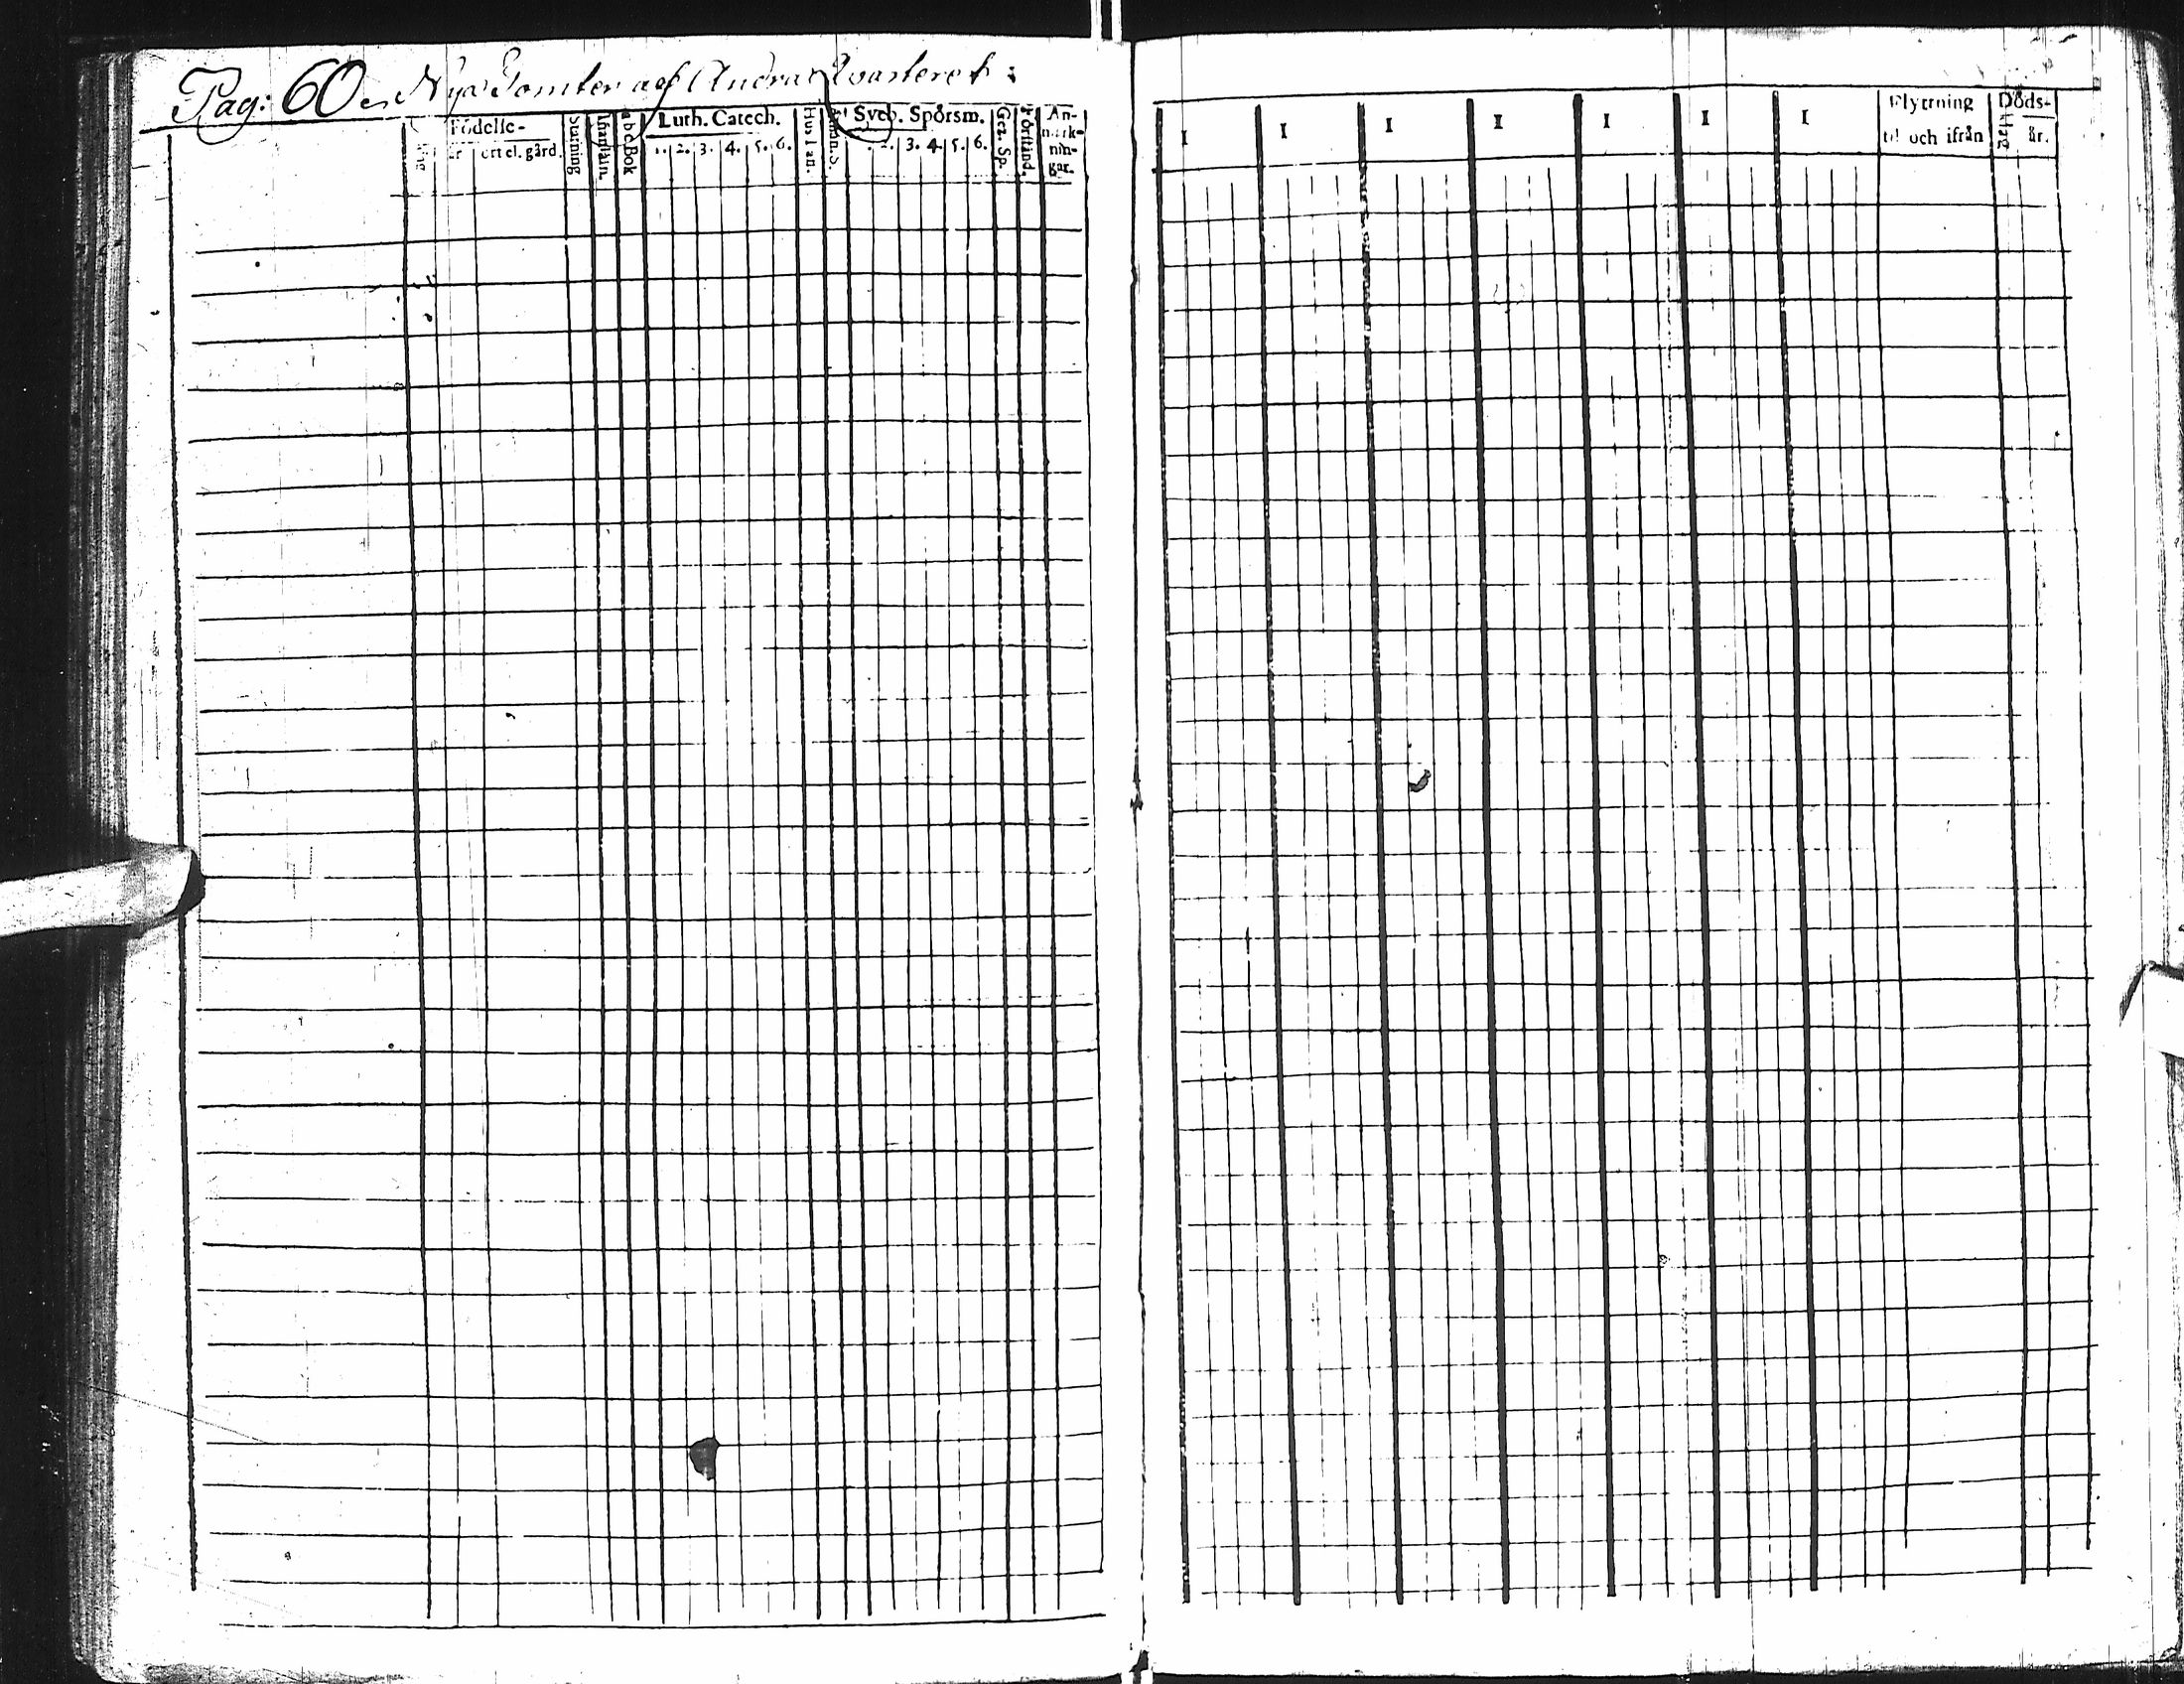 Pag: 60. Nya Tomter af Andra Qvarteret:
Födelse-
år ort el. gård.
Stafning
Innanläsn.
abc Bok
Luth. Catech.
1. 2. 3. 4. 5. 6.
Hustafl.
Sveb. Spörsm.
2. 3. 4. 5. 6.
Gez. Sp.
Förstånd.
An-
märk-
nin-
gar.
I I I I I I I
Flyttning
til och ifrån
Döds-
dag
år.